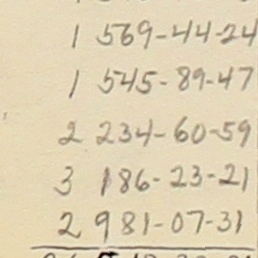 1 569-44-24
1 545-89-47
2 234-60-59
3 186-23-21
2 981-07-31